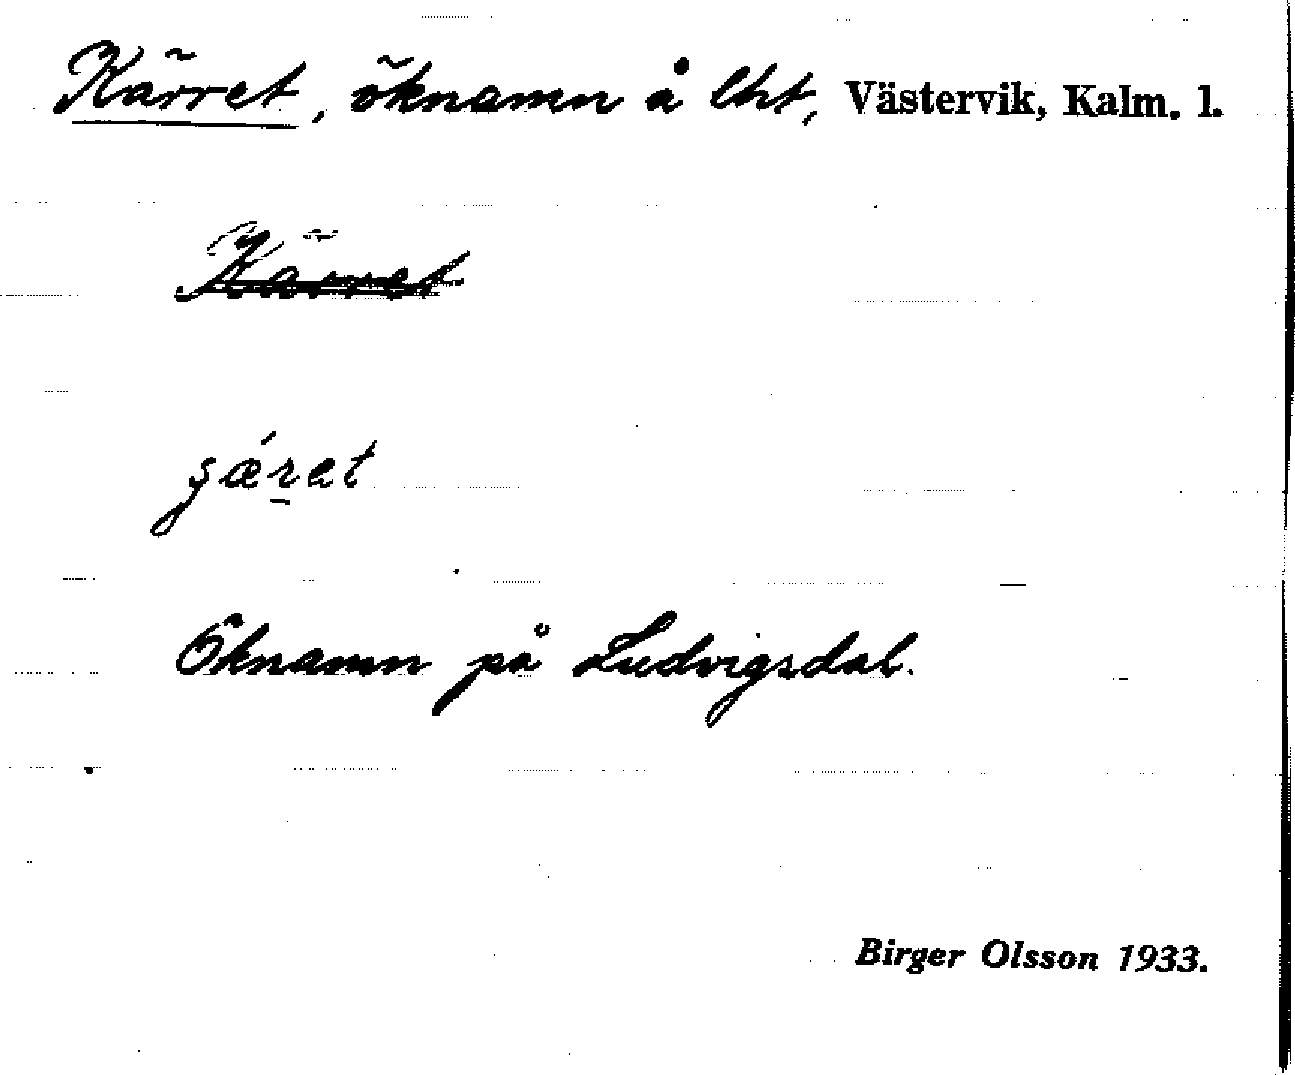 Kärret, öknamn å lht, Västervik, Kalm. l.
Kärret
Öknamn på Ludvigsdal.
Birger Olsson 1933.